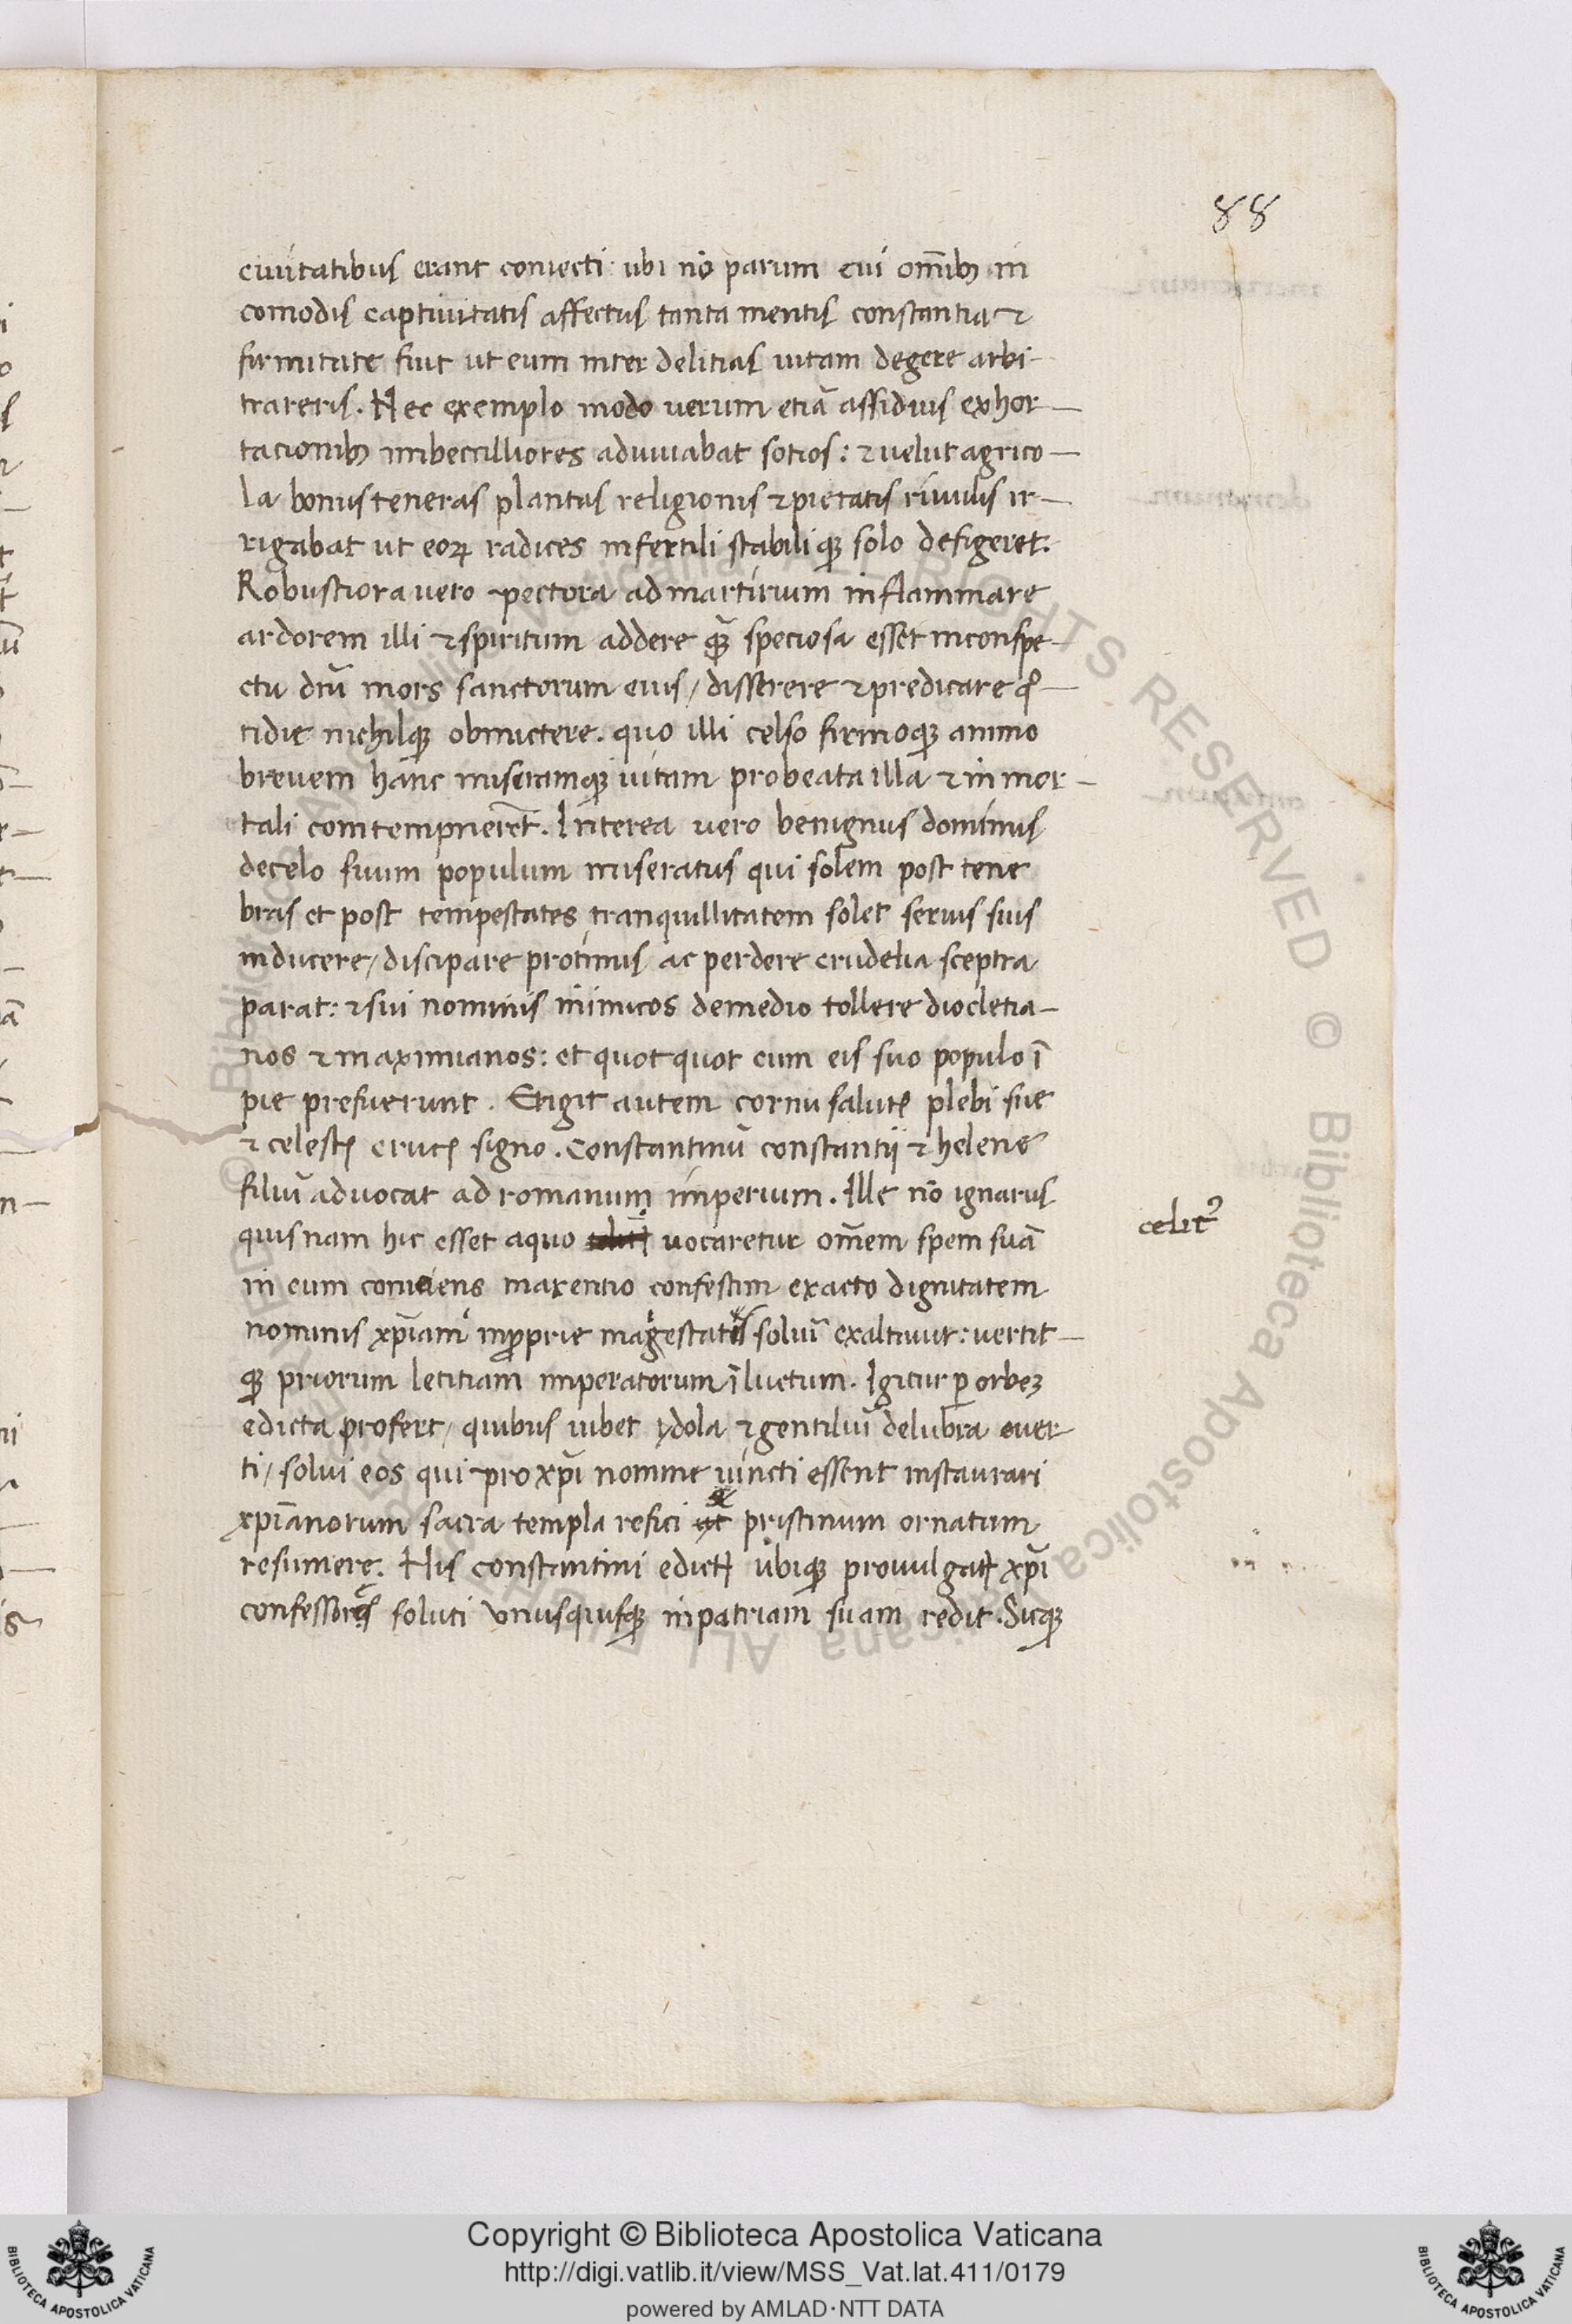 88
ciuitatibus erant coniecti: ubi nō parum cui om̄ib; in
comodis captiuitatis affectus tanta mentis constantia ⁊
firmitate fuit ut eum inter delitias uitam degere arbi-
trareris. Nec exemplo modo uerum etiā assiduis exhor-
tacionib; imbecilliores adiuuabat sotios: ⁊ uelut agrico-
la bonus teneras plantas religionis ⁊ pietatis riuulis ir-
rigabat ut eoꝝ radices in fertili stabiliqꝫ solo defigeret.
Robustiora uero pectora ad martirium inflammare
ardorem illi ⁊ spiritum addere qꝫ̄ speciosa esset in conspe-
ctu dn̄i mors sanctorum eius/ disserere ⁊ predicare qͦ-
tidie nichilqꝫ obmictere. quo illi celso firmoqꝫ animo
breuem hanc miseramqꝫ uitam pro beata illa ⁊ in mor-
tali comtempnerēt. Interea uero benignus dominus
de celo suum populum miseratus qui solem post tene
bras et post tempestates tranquillitatem solet seruis suis
inducere/ discipare protinus ac perdere crudelia sceptra
parat: ⁊ sui nominis inimicos de medio tollere diocletia-
nos ⁊ maximianos: et quot quot cum eis suo populo ī
pie prefuerunt. Erigit autem cornu salutꝭ plebi sue
⁊ celestꝭ crucꝭ signo. Constantinū constantij ⁊ helene
filiū aduocat ad romanum imperium. Ille nō ignarus
quisnam hic esset a quo uocaretur om̄em spem suā
celitꝰ
in eum coniciens maxentio confestim exacto dignitatem
nominis xp̄iani in ꝓprie magestatis soliū exaltauit: uertit-
qꝫ priorum letitiam imperatorum ī luctum. Igitur ꝑ orbeꝫ
edicta profert/ quibus iubet ydola ⁊ gentiliū delubra euer
ti/ solui eos qui pro xp̄i nomine uincti essent instaurari
xp̄ianorum sacra templa refici ac pristinum ornatum
resumere. His constantini edictꝭ ubiqꝫ prouulgatꝭ xp̄i
confessores soluti Vnusquisqꝫ in patriam suam redit. Sicqꝫ
Copyright © Biblioteca Apostolica Vaticana
http://digi.vatlib.it/view/MSS_Vat.lat.411/0179
powered by AMLAD·NTT DATA
BIBLIOTECA APOSTOLICA VATICANA
BIBLIOTECA APOSTOLICA VATICANA